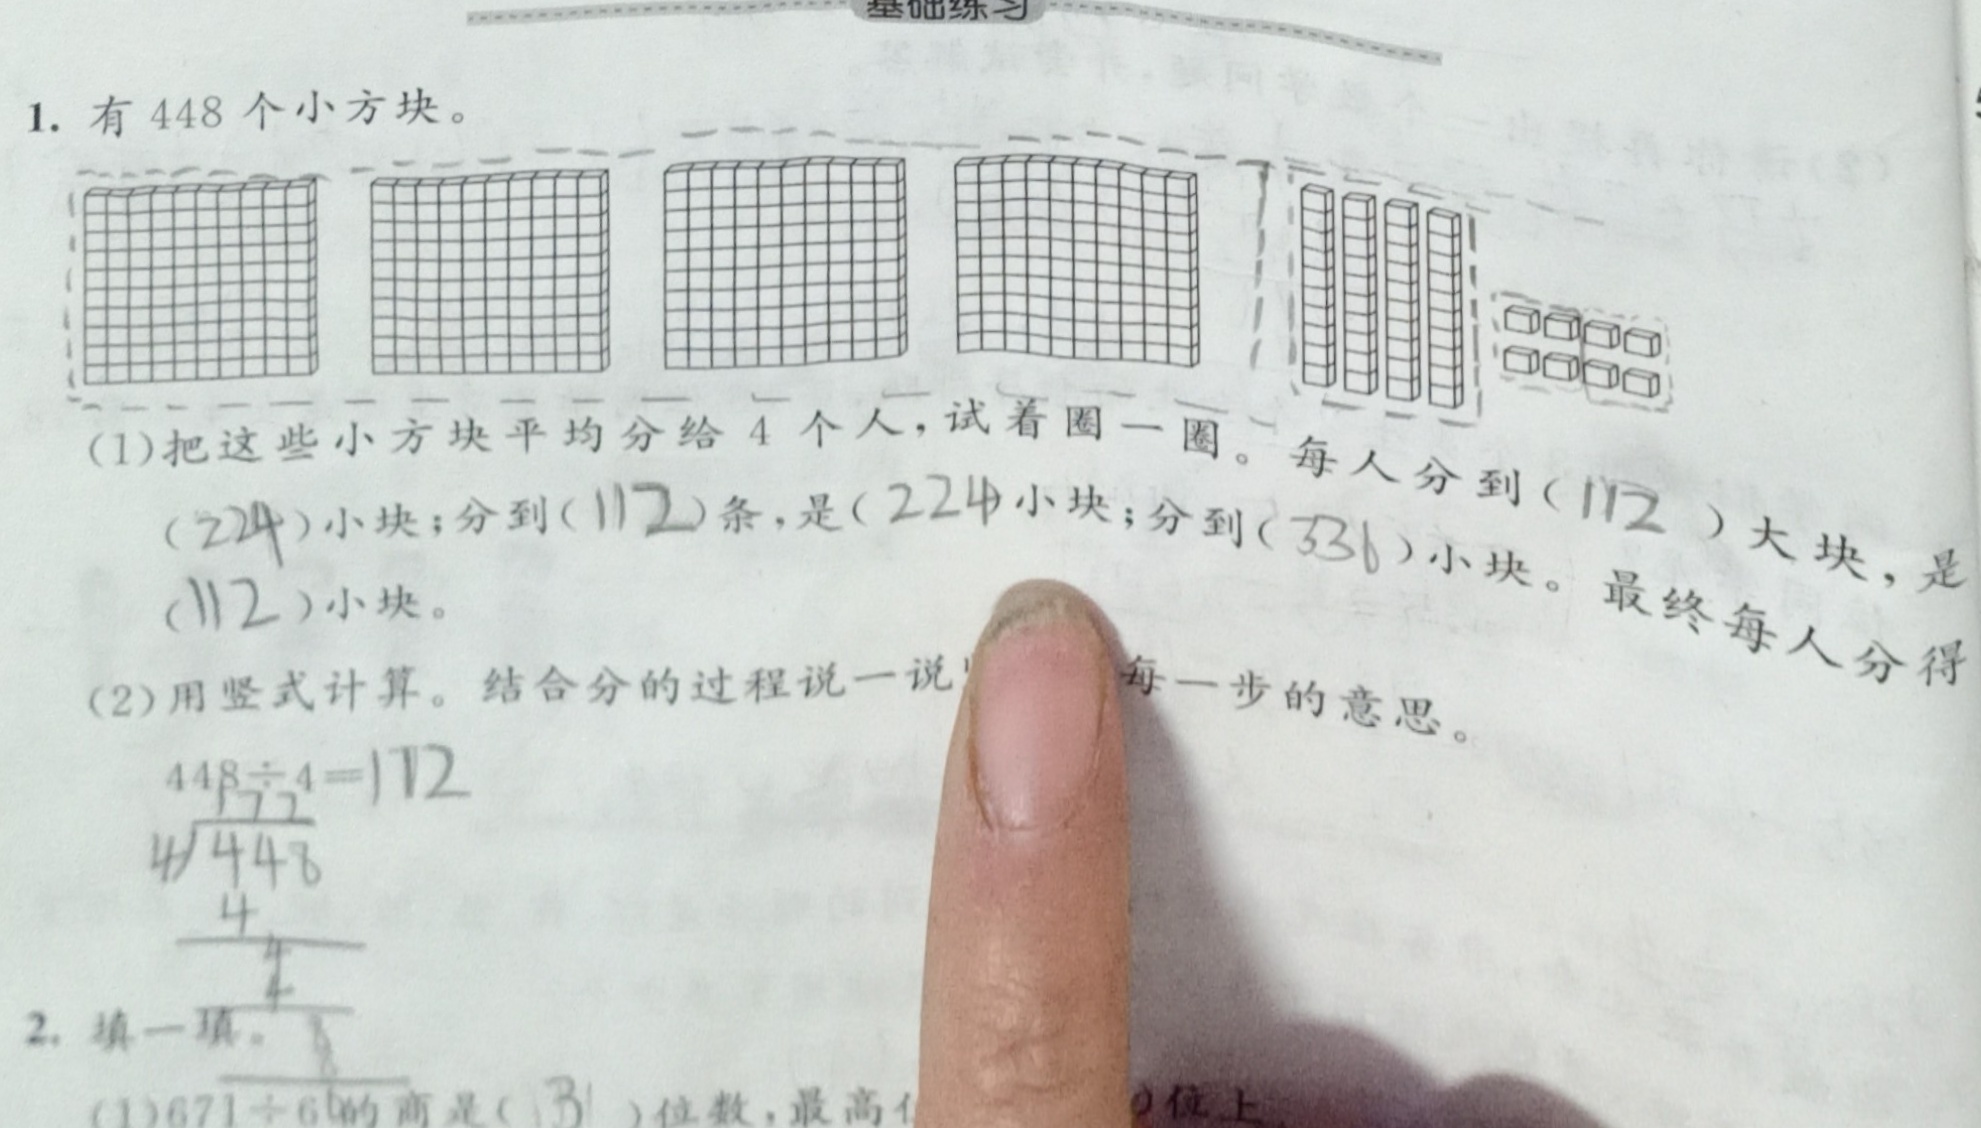 基础练习
1. 有 448 个小方块。
(1)把这些小方块平均分给 4 个人,试着圈一圈。每人分到(112)大块,是
(224)小块;分到(112)条,是(224)小块;分到(336)小块。最终每人分得
(112)小块。
(2)用竖式计算。结合分的过程说一说 每一步的意思。
448÷4=112
112
4 448
4
4
4
8
8
2. 填一填。
(1)671÷6的商是( 3 )位数,最高 位上